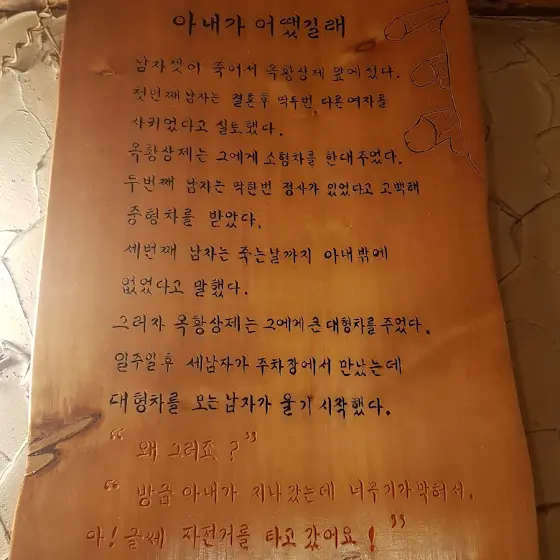 아내가 어땠길래
남자 셋이 죽어서 옥황상제 앞에 섰다.
첫번째 남자는 결혼후 딱두번 다른여자를
사귀었다고 실토했다.
옥황상제는 그에게 소형차를 한대주었다.
두번째 남자는 딱한번 정사가 있었다고 고백해
중형차를 받았다.
세번째 남자는 죽는날까지 아내밖에
없었다고 말했다.
그러자 옥황상제는 그에게 큰 대형차를 주었다.
일주일후 세남자가 주차장에서 만났는데
대형차를 모는 남자가 울기 시작했다.
"왜 그러죠?"
"방금 아내가 지나갔는데 너무기가막혀서.
아! 글쎄 자전거를 타고 갔어요!"